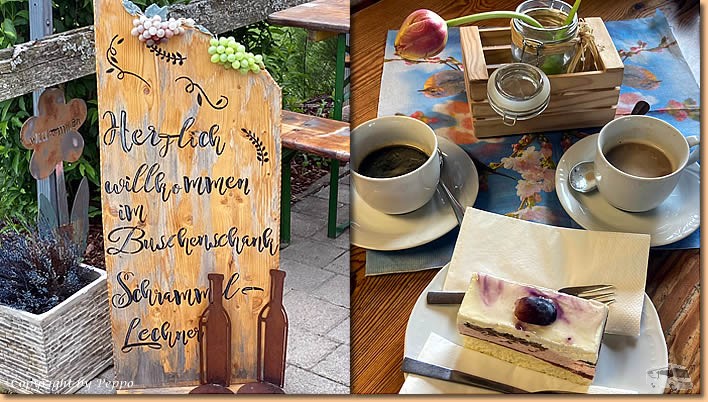 Willkommen
Herzlich
willkommen
im
Buschenschank
Schrammel-
Lechner
Copyright by Peppo